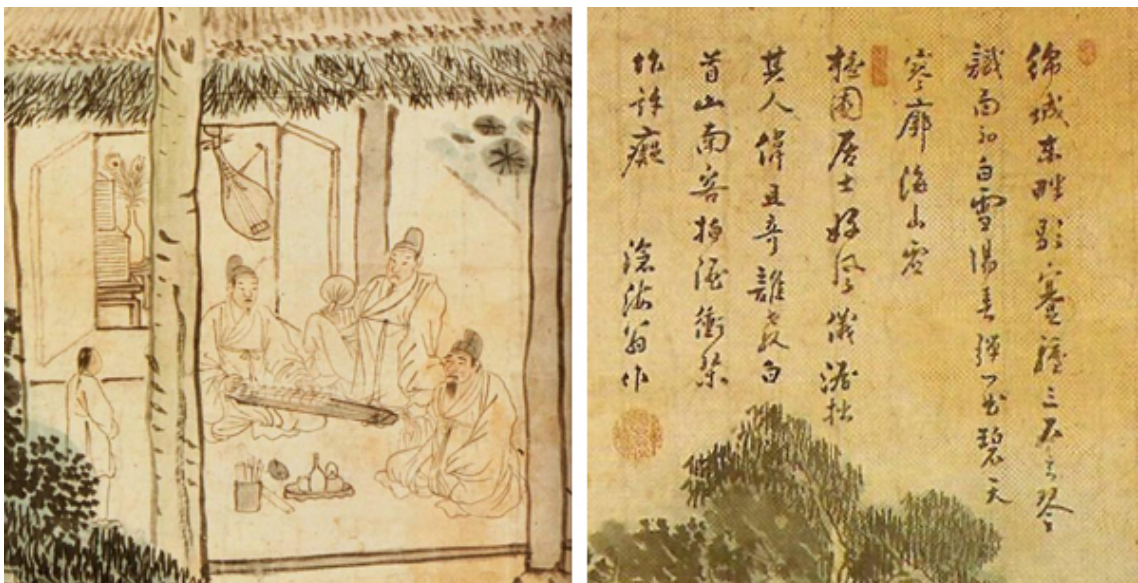 錦城東畔歇蹇驢三尺玄琴
識面初白雪陽春彈一曲碧天
寥廓海山虛
檀園居士好風儀澹拙
其人偉且奇誰敎白
首山南客拍酒衝琴
作許癡 滄海翁作